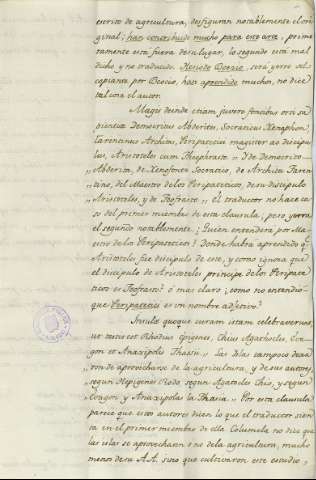 escrito de agricultura, desfiguran notablemente el ori-
ginal; han contribuido mucho para este arte, prime-
ramente esta fuera de su lugar, lo segundo está mal
dicho y no traducido. Hesiodo Beocio, será yerro sel
capianta por Beocio, han aprendido muchos, no dice
tal cosa el autor.
Magis deinde etiam juvere fontibus orti sa-
pientiæ Democritus Abderites, Socraticus Xenophon,
Tarentinus Architas, Peripatetici magister ac discipu-
lus, Aristoteles cum Theophrasto. „Y de Democrito
„Abderita, de Xenofonte Socratico, de Archita Taren-
tino, del Maestro de los Peripateticos, de su discipulo
„Aristoteles, y de Teofrasto„ El traductor no hace ca-
so del primer miembro de esta clausula; pero yerra
el segundo notablemente. ¿Quien entendera por Ma-
estro de los Peripateticos? Donde habrá aprendido qe.
Aristoteles fue discipulo de este, y como ignora que
el discipulo de Aristoteles principe de los Peripate-
ticos es Teofrasto? ó mas claro; como no entendió
que Peripatetici es un nombre adjetivo?
Insulæ quoque curam istam celebraverunt,
ut testis est Rhodius Epigenes, Chius Agathocles, Eva-
gon et Anaxipolis Thasii. „las Islas tampoco dexa-
„ron de aprovecharse de la agricultura, y de sus autores,
„segun Hepigenes Rodo, segun Agatoles Chio, y segun
„Evagon y Anaxipolas la Thasia„ Por esta clausula
parece que estos autores dicen lo que el traductor sien-
ta en el primer miembro de ella Columela no dice que
las islas se aprovecharon ó no de la agricultura, mucho
menos de su A.A. sino que cultivaron este estudio,